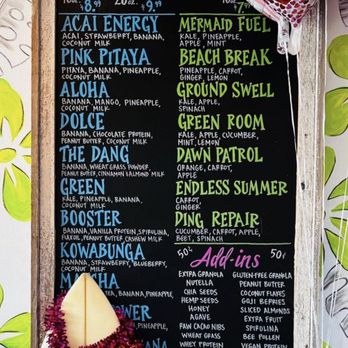 8.99 20oz. 9.99
7.99
ACAI ENERGY
ACAI, STRAWBERRY, BANANA,
COCONUT MILK
PINK PITAYA
PITAYA, BANANA, PINEAPPLE,
COCONUT MILK
ALOHA
BANANA, MANGO, PINEAPPLE,
COCONUT MILK
DOLCE
BANANA, CHOCOLATE PROTEIN,
PEANUT BUTTER, COCONUT MILK
THE DANG
BANANA, WHEAT GRASS POWDER,
PEANUT BUTTER, CINNAMON & ALMOND MILK
GREEN
KALE, PINEAPPLE, BANANA,
COCONUT MILK
BOOSTER
BANANA, VANILLA PROTEIN, SPIRULINA,
PEANUT BUTTER, CASHEW MILK
KOWABUNGA
BANANA, STRAWBERRY, BLUEBERRY,
COCONUT MILK
BANANA, PINEAPPLE,
OWER
MERMAID FUEL
KALE, PINEAPPLE,
APPLE, MINT
BEACH BREAK
PINEAPPLE, CARROT,
GINGER, LEMON
GROUND SWELL
KALE, APPLE,
SPINACH
GREEN ROOM
KALE, APPLE, CUCUMBER,
MINT, LEMON
DAWN PATROL
ORANGE, CARROT,
APPLE
ENDLESS SUMMER
CARROT,
GINGER
DING REPAIR
CUCUMBER, CARROT, APPLE,
BEET, SPINACH
50¢ Add-ins 50¢
EXTRA GRANOLA
NUTELLA
CHIA SEEDS
HEMP SEEDS
HONEY
AGAVE
RAW CACAO NIBS
WHEAT GRASS
WHEY PROTEIN
GLUTEN-FREE GRANOLA
PEANUT BUTTER
COCONUT FLAKES
GOJI BERRIES
SLICED ALMONDS
EXTRA FRUIT
SPIRULINA
BEE POLLEN
VEGAN PROTEIN